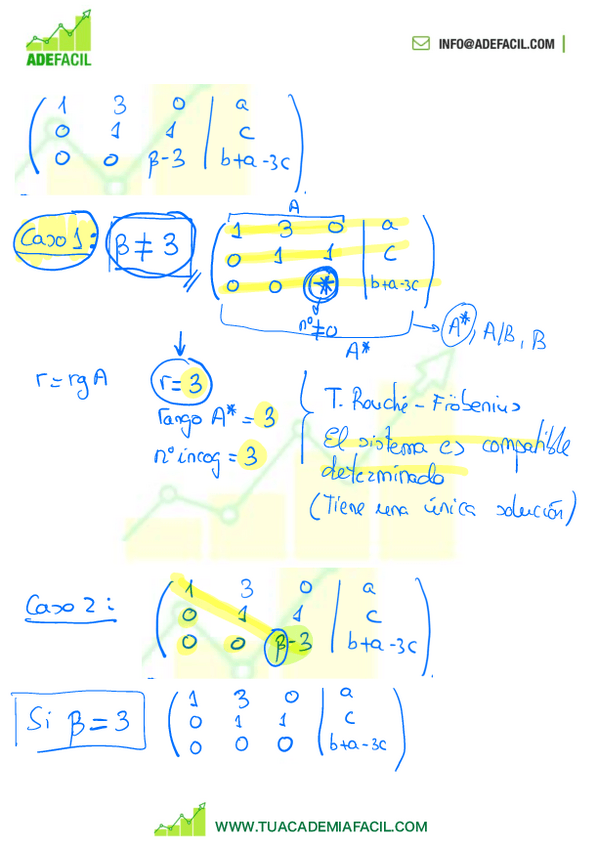 ADEFACIL
INFO@ADEFACIL.COM
1 3 0 | a
0 1 1 | c
0 0 β-3 | b+a-3c
A
Caso 1: β ≠ 3
1 3 0 | a
0 1 1 | c
0 0 * | b+a-3c
nº ≠ 0
A*
A*, A/B, B
r = rg A
r = 3
rango A* = 3
nº incog = 3
T. Rouché - Fröbenius
El sistema es compatible
determinado
(Tiene una única solución)
Caso 2:
1 3 0 | a
0 1 1 | c
0 0 β-3 | b+a-3c
Si β = 3
1 3 0 | a
0 1 1 | c
0 0 0 | b+a-3c
WWW.TUACADEMIAFACIL.COM